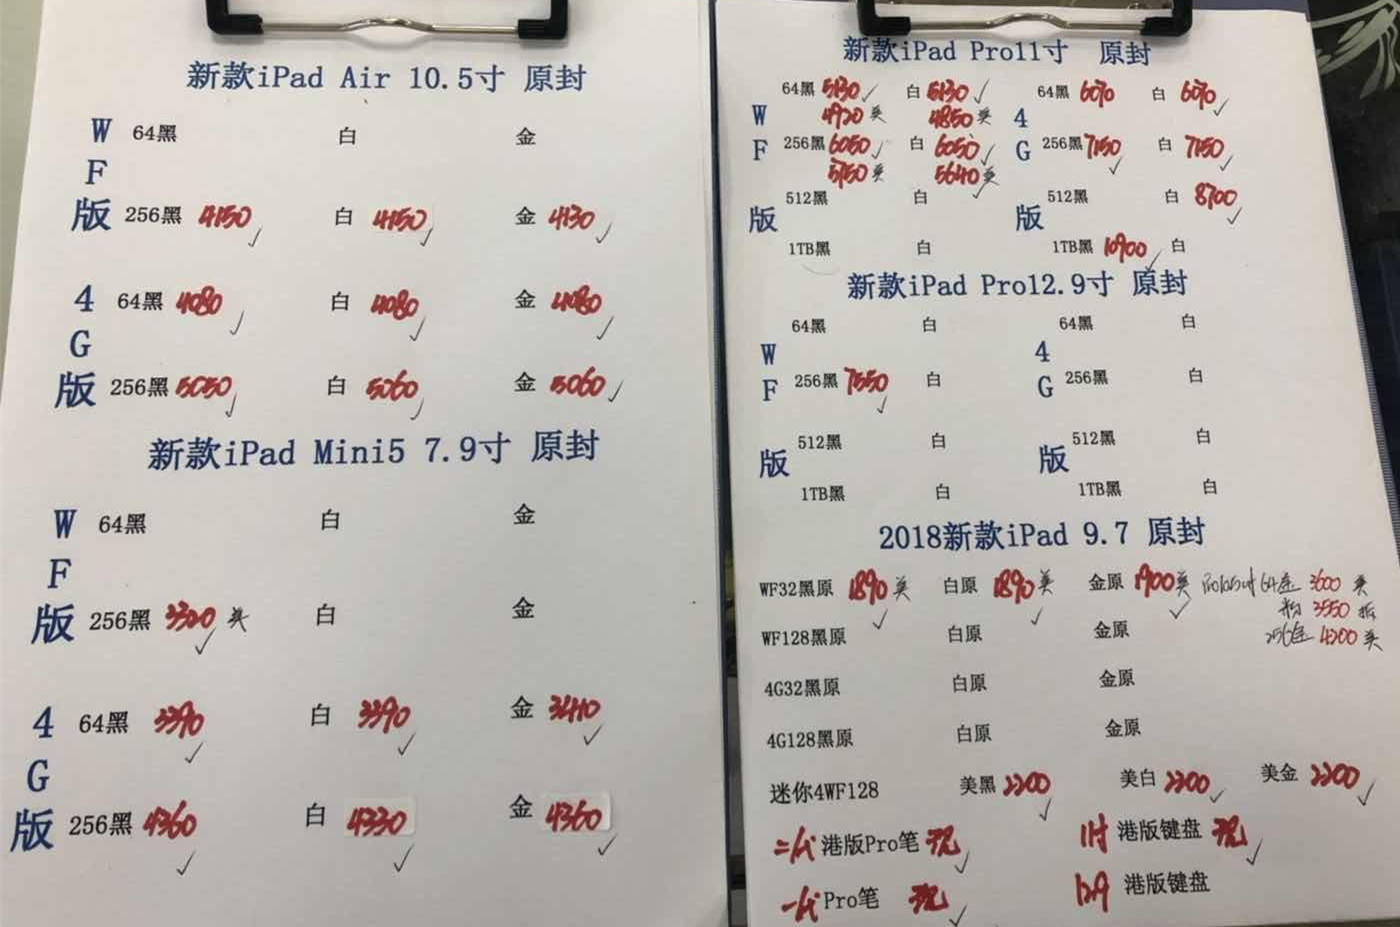 新款iPad Air 10.5寸 原封
WF版
64黑 白 金
256黑 4150 白 4150 金 4130
4G版
64黑 4080 白 4080 金 4080
256黑 5050 白 5060 金 5060
新款iPad Mini5 7.9寸 原封
WF版
64黑 白 金
256黑 3320 美 白 金
4G版
64黑 3390 白 3390 金 3410
256黑 4360 白 4330 金 4360
新款iPad Pro11寸 原封
WF版
64黑 5130 白 5130
4920 美 4850 美
256黑 6050 白 6050
5750 美 5640 美
512黑 白
1TB黑 白
4G版
64黑 6070 白 6070
256黑 7150 白 7150
512黑 白 8700
1TB黑 10900 白
新款iPad Pro12.9寸 原封
WF版
64黑 白
256黑 7550 白
512黑 白
1TB黑 白
4G版
64黑 白
256黑 白
512黑 白
1TB黑 白
2018新款iPad 9.7 原封
WF32黑原 1890 美 白原 1890 美 金原 1900 美
Pro10.5寸 64金 3600 美
粉 3550
256金 4200 美
WF128黑原 白原 金原
4G32黑原 白原 金原
4G128黑原 白原 金原
迷你4WF128 美黑 2200 美白 2200 美金 2200
二代 港版Pro笔 现 11寸 港版键盘 现
一代 Pro笔 现 12.9 港版键盘